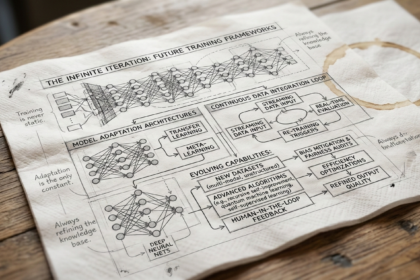 THE INFINITE ITERATION: FUTURE TRAINING FRAMEWORKS
Always
refining the
knowledge
base.
Training is
never
static.
CONTINUOUS DATA INTEGRATION LOOP
STREAMING
DATA INPUT
REAL-TIME
EVALUATION
STREAMING
DATA INPUT
RE-TRAINING
TRIGGERS
MODEL ADAPTATION ARCHITECTURES
TRANSFER
LEARNING
META-
LEARNING
Adaptation
is the only
constant.
EVOLVING CAPABILITIES:
NEW DATASETS
(multi-modal, unstructured)
ADVANCED ALGORITHMS
quantum machine learning,
self-supervised learning)
HUMAN-IN-THE-LOOP
FEEDBACK
BIAS MITIGATION &
FAIRNESS AUDITS
EFFICIENCY
OPTIMIZATIONS
REFINED OUTPUT
QUALITY
Always
refining the
knowledge
base.
DEEP
NEURAL
NETS
Always